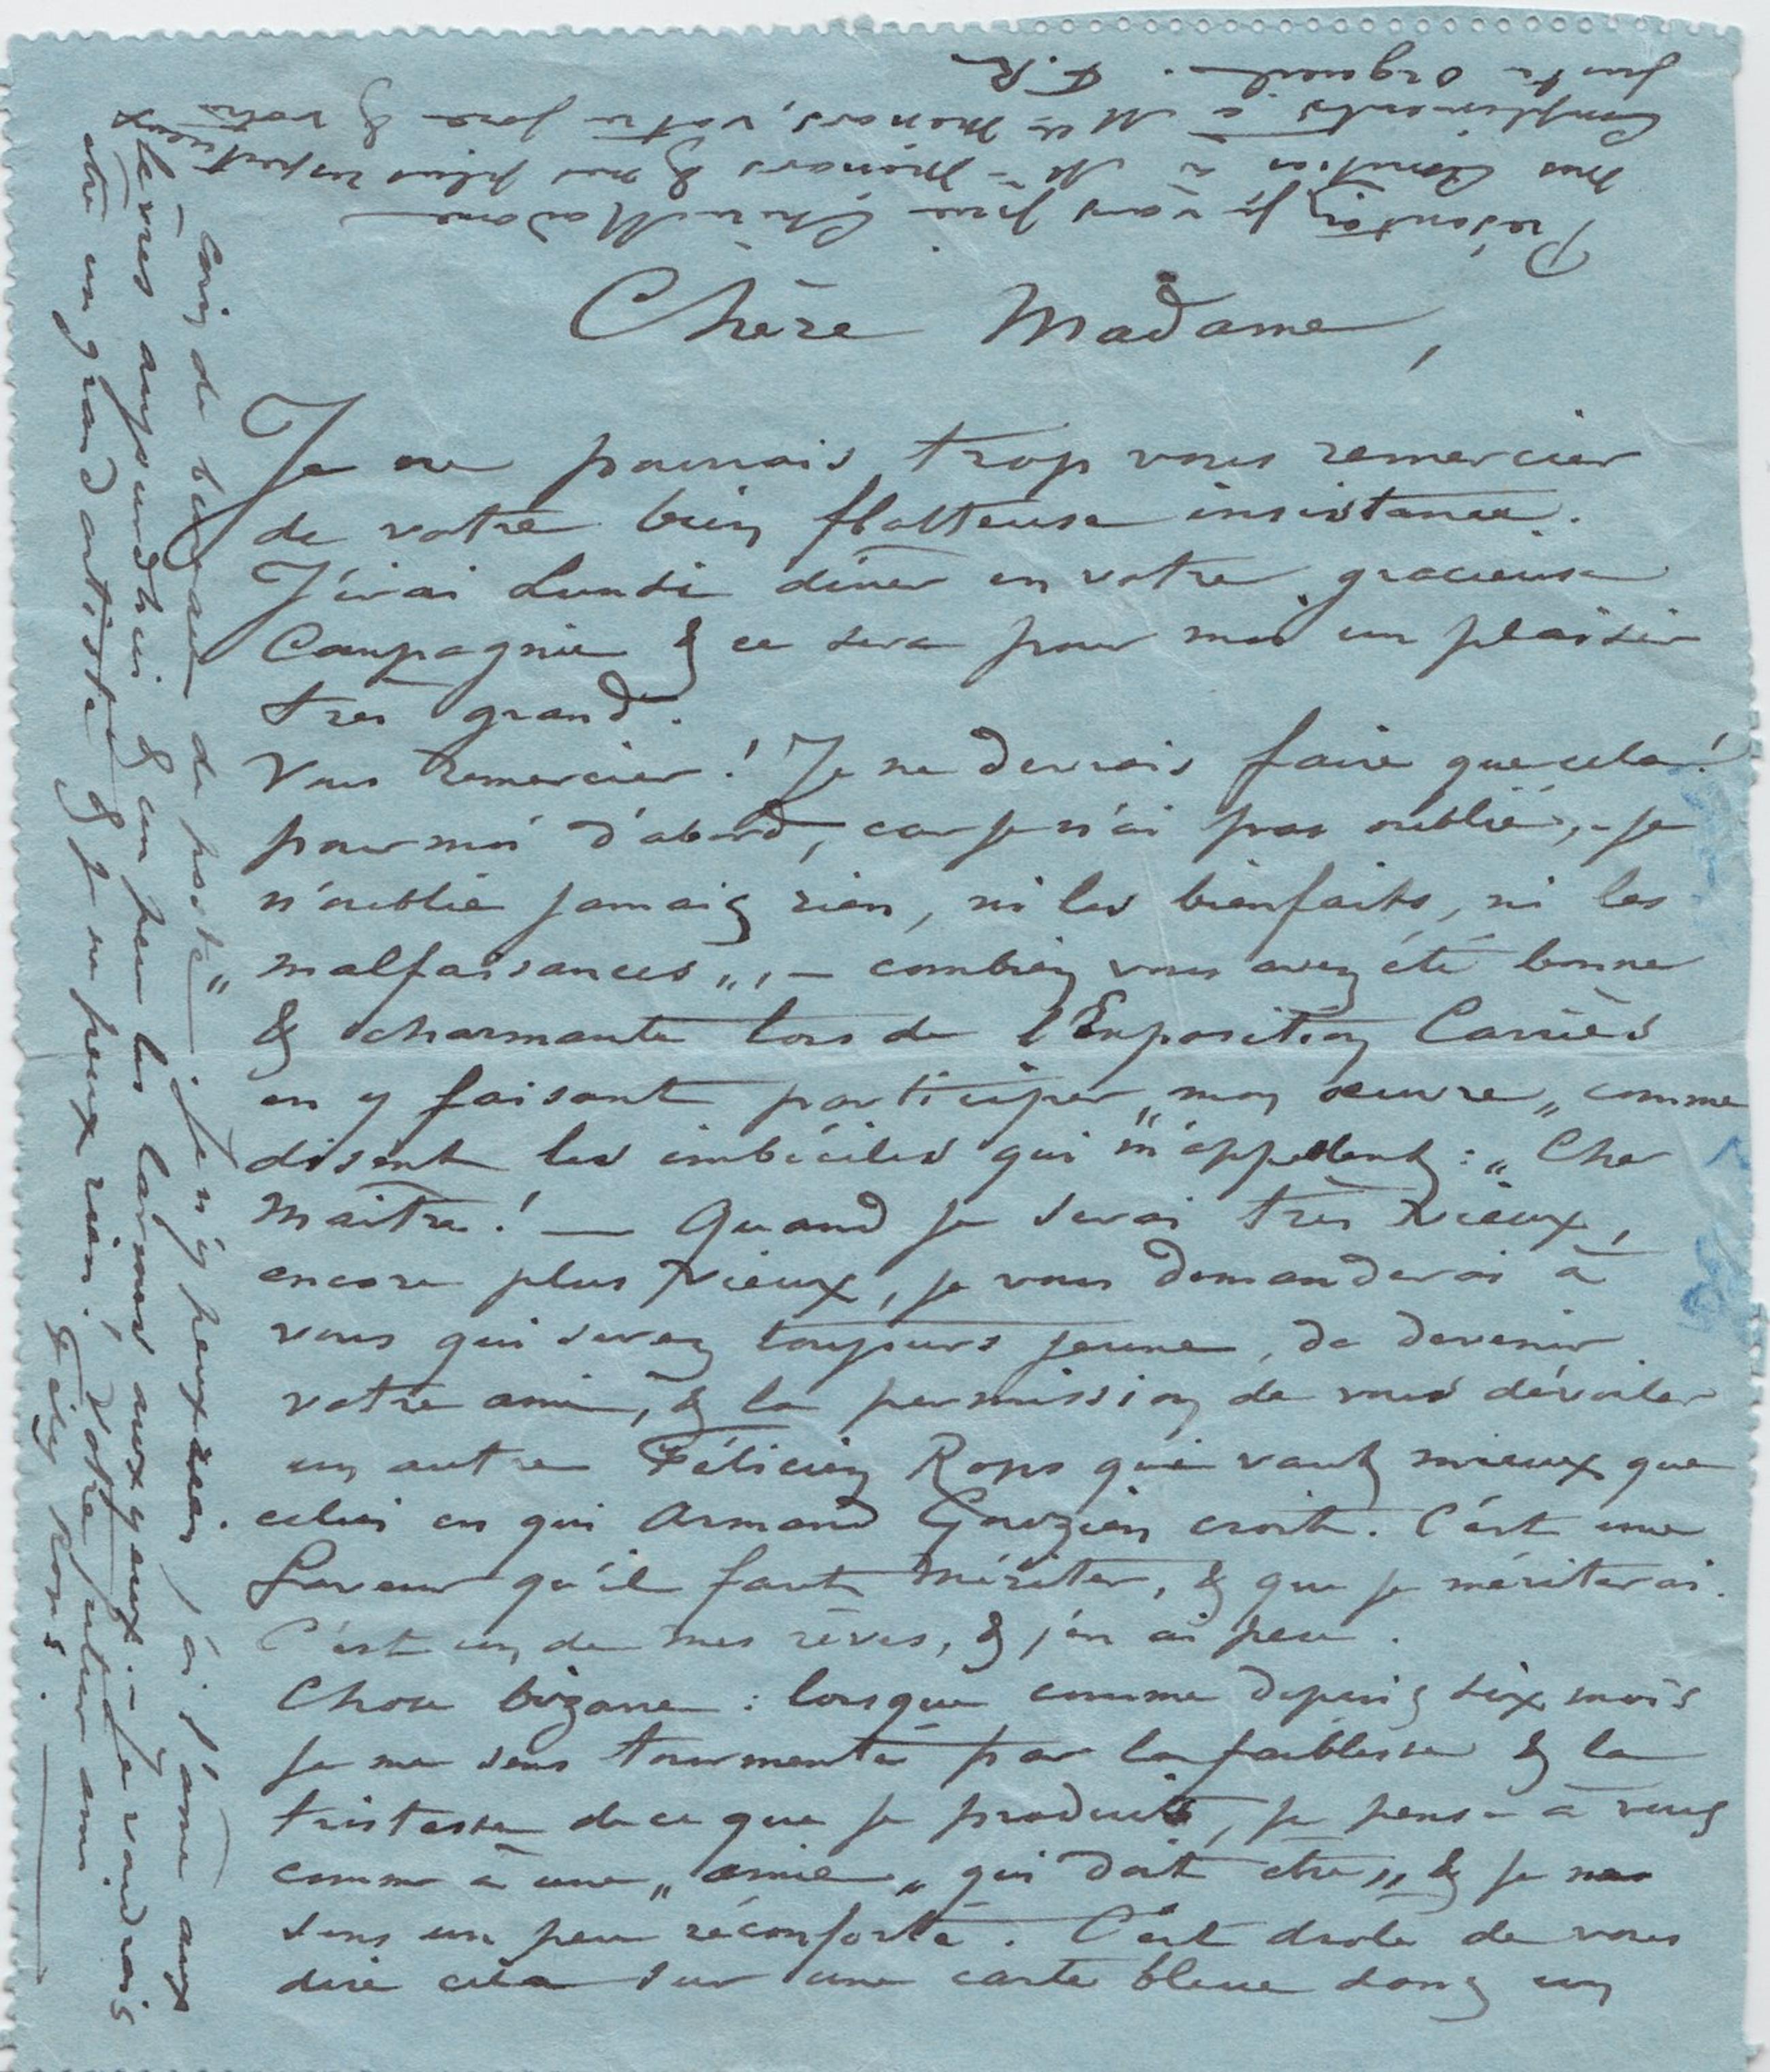 Chère Madame,
Je ne pourrais trop vous remercier
de votre bien flatteuse insistance.
J'irai Lundi dîner en votre gracieuse
Compagnie & ce sera pour moi un plaisir
très grand.
Vous remercier ! Je ne devrais faire que cela !
pour moi d'abord, car je n'ai pas oublié, – je
n'oublie jamais rien, ni les bienfaits, ni les
malfaisances „, – combien vous avez été bonne
& charmante lors de l'Exposition Carriès
en y faisant participer „mon œuvre„ comme
disent les imbéciles qui m'appellent : „Cher
Maître ! — Quand je serai très vieux,
encore plus vieux, je vous demanderai à
vous qui serez toujours jeune, de devenir
votre ami, & la permission de vous dévoiler
un autre Félicien Rops qui vaut mieux que
celui en qui Armand Gouzien croit. C'est une
faveur qu'il faut mériter, & que je mériterai.
C'est un de mes rêves, & j'en ai peu.
Chose bizarre : lorsque comme depuis six mois
je me sens tourmenté par la faiblesse & la
tristesse de ce que je produis, je pense à vous
comme à une „amie„ qui doit être„ & je me
sens un peu réconforté. C'est drole de vous
dire cela sur une carte bleue dans un
coin de bureau de poste". Je n'y peux rien, j'ai l'âme aux
lèvres aujourdhui & un peu les larmes aux yeux. – Je voudrais
être un grand artiste & je ne peux rien. Votre futur ami
Fély Rops.
Présentez je vous prie Chère Madame
mes amitiés à Mr Ménars & mes plus respectueux
Compliments à Mme Ménars, votre joie & votre
juste orgueil. F.R.